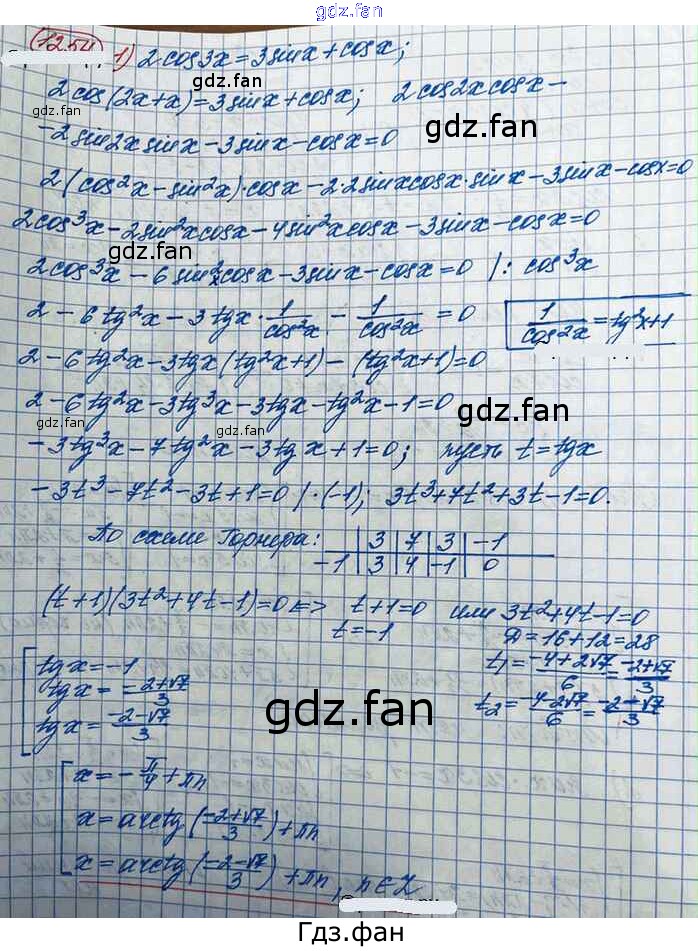 gdz.fan
1254, 1) 2cos3x=3sinx+cosx;
2cos(2x+x)=3sinx+cosx; 2cos2xcosx-
-2sin2xsinx-3sinx-cosx=0
gdz.fan
gdz.fan
2(cos²x-sin²x)·cosx-2·2sinxcosx·sinx-3sinx-cosx=0
2cos³x-2sin²xcosx-4sin²xcosx-3sinx-cosx=0
gdz.fan
2cos³x-6sin²xcosx-3sinx-cosx=0 /: cos³x
2-6tg²x-3tgx·1/cos²x-1/cos²x=0 1/cos²x=tg²x+1
2-6tg²x-3tgx(tg²x+1)-(tg²x+1)=0
2-6tg²x-3tg³x-3tgx-tg²x-1=0
gdz.fan
gdz.fan
-3tg³x-7tg²x-3tgx+1=0; пусть t=tgx
-3t³-7t²-3t+1=0 /·(-1); 3t³+7t²+3t-1=0.
По схеме Горнера: 3 7 3 -1
-1 3 4 -1 0
(t+1)(3t²+4t-1)=0 <=> t+1=0 или 3t²+4t-1=0
t=-1 D=16+12=28
tgx=-1 t₁=(-4+2√7)/6=(-2+√7)/3
tgx=(-2+√7)/3
tgx=(-2-√7)/3 t₂=(-4-2√7)/6=(-2-√7)/3
gdz.fan
gdz.fan
x=-π/4+πn
x=arctg((-2+√7)/3)+πn
x=arctg((-2-√7)/3)+πn, n∈Z
Гдз.фан